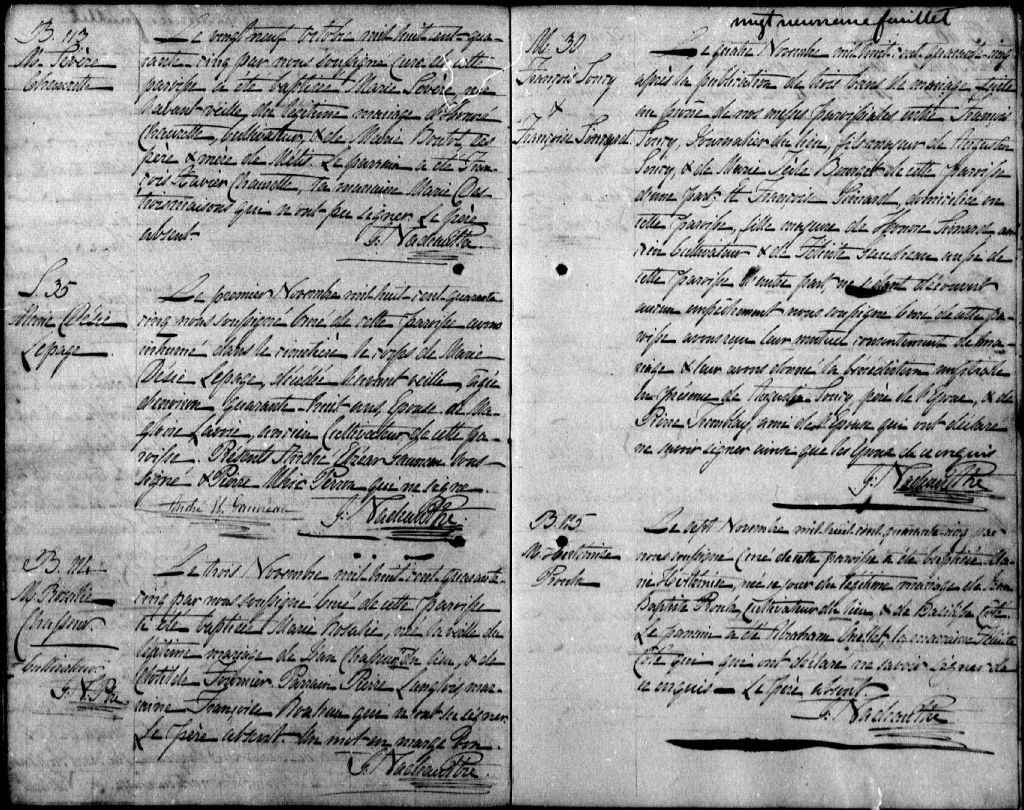 B. 113
M. Sévère
Chourette
Le vingt neuf octobre mil huit cent qua-
rante-cinq par nous soussigné Curé de cette
paroisse a été baptisée Marie Sévère, née
l'avant-veille du légitime mariage d'Honoré
Chaurette, Cultivateur, & de Marie
père & mère de Métis. Le parrain a été Fran-
çois Xavier Chaurette, la marraine Marie Des
trois maisons qui n'ont pu signer. Le père
absent.
J. Nadeau Ptre
S. 35
Marie Désie
Lepage
Le premier Novembre mil huit cent quarante
cinq nous soussigné Curé de cette Paroisse avons
inhumé dans le cimetière le corps de Marie
Désie Lepage, décédée l'avant veille, agée
d'environ quarante-huit ans, Epouse de Ma
gloire Lavoie, ancien Cultivateur de cette pa-
roisse. Présents André Elzear Gauvreau sous-
signé & Pierre Marc Perron qui ne signe.
André E. Gauvreau
J. Nadeau Ptre
B. 114
M. Rosalie
Chasseur
Cultivateur
J. N. Ptre
Le trois Novembre mil huit cent quarante-
cinq par nous soussigné Curé de cette Paroisse
a été baptisée Marie Rosalie, née la veille du
légitime mariage de Jean Chasseur du lieu, & de
Clotilde Fournier. Parrain Pierre Langlois mar-
raine Françoise qui n'ont su signer.
Le Père absent. Un mot en marge Bon.
J. Nadeau Ptre
vingt neuvième feuillet
M. 30
François Soucy
&
Françoise Simard
Le quatre Novembre mil huit cent quarante-cinq
après la publication de trois bans de mariage faite
au prône de nos messes paroissiales entre François
Soucy, Journalier du lieu, fils majeur de Augustin
Soucy & de Marie de cette Paroisse
d'une part, et Françoise Simard, domiciliée en
cette Paroisse, fille majeure de Honoré Simard an
cien Cultivateur & de Félicité Gaudreau aussi de
cette Paroisse d'autre part, ne s'étant découvert
aucun empêchement nous soussigné Curé de cette pa-
roisse avons reçu leur mutuel consentement de ma-
riage & leur avons donné la bénédiction nuptiale
en présence de Augustin Soucy, père de l'Epoux, & de
Pierre Tremblay, ami de l'Epouse qui ont déclaré
ne savoir signer ainsi que les Epoux de ce enquis
J. Nadeau Ptre
B. 115
Rouk
Le sept Novembre mil huit cent quarante-cinq par
nous soussigné Curé de cette paroisse a été baptisée Ma-
rie née ce jour du légitime mariage de Jean
Baptiste Cultivateur du lieu, & de Basilisse Côté
Le parrain a été Abraham la marraine Félicité
Côté qui qui ont déclaré ne savoir signer de
ce enquis — Le père absent.
J. Nadeau Ptre